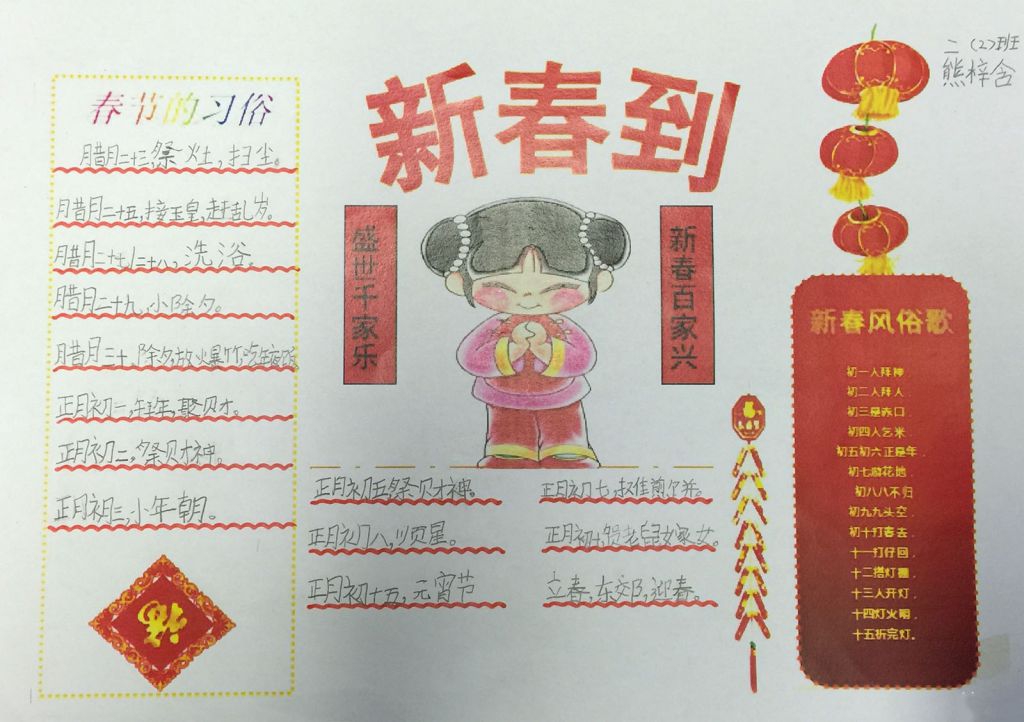 二（2）班
熊梓含
新春到
春节的习俗
腊月二十三，祭灶，扫尘。
腊月二十五，接玉皇，赶乱岁。
腊月二十七/二十八，洗浴。
腊月二十九，小除夕。
腊月三十，除夕，放火爆竹，吃年夜饭
正月初一，年，聚财。
正月初二，祭财神。
正月初三，小年朝。
福
盛世千家乐
新春百家兴
正月初五祭财神。
正月初七，
正月初八，顺星。
正月初十，贺老鼠女。
正月初十五，元宵节
立春，东郊，迎春。
新春风俗歌
初一人拜神，
初二人拜人，
初三是赤口，
初四人乞米，
初五初六正是年，
初七游花地，
初八八不归
初九九头空，
初十打春去，
十一打仔回，
十二搭灯棚，
十三人开灯，
十四灯火明，
十五折完灯。